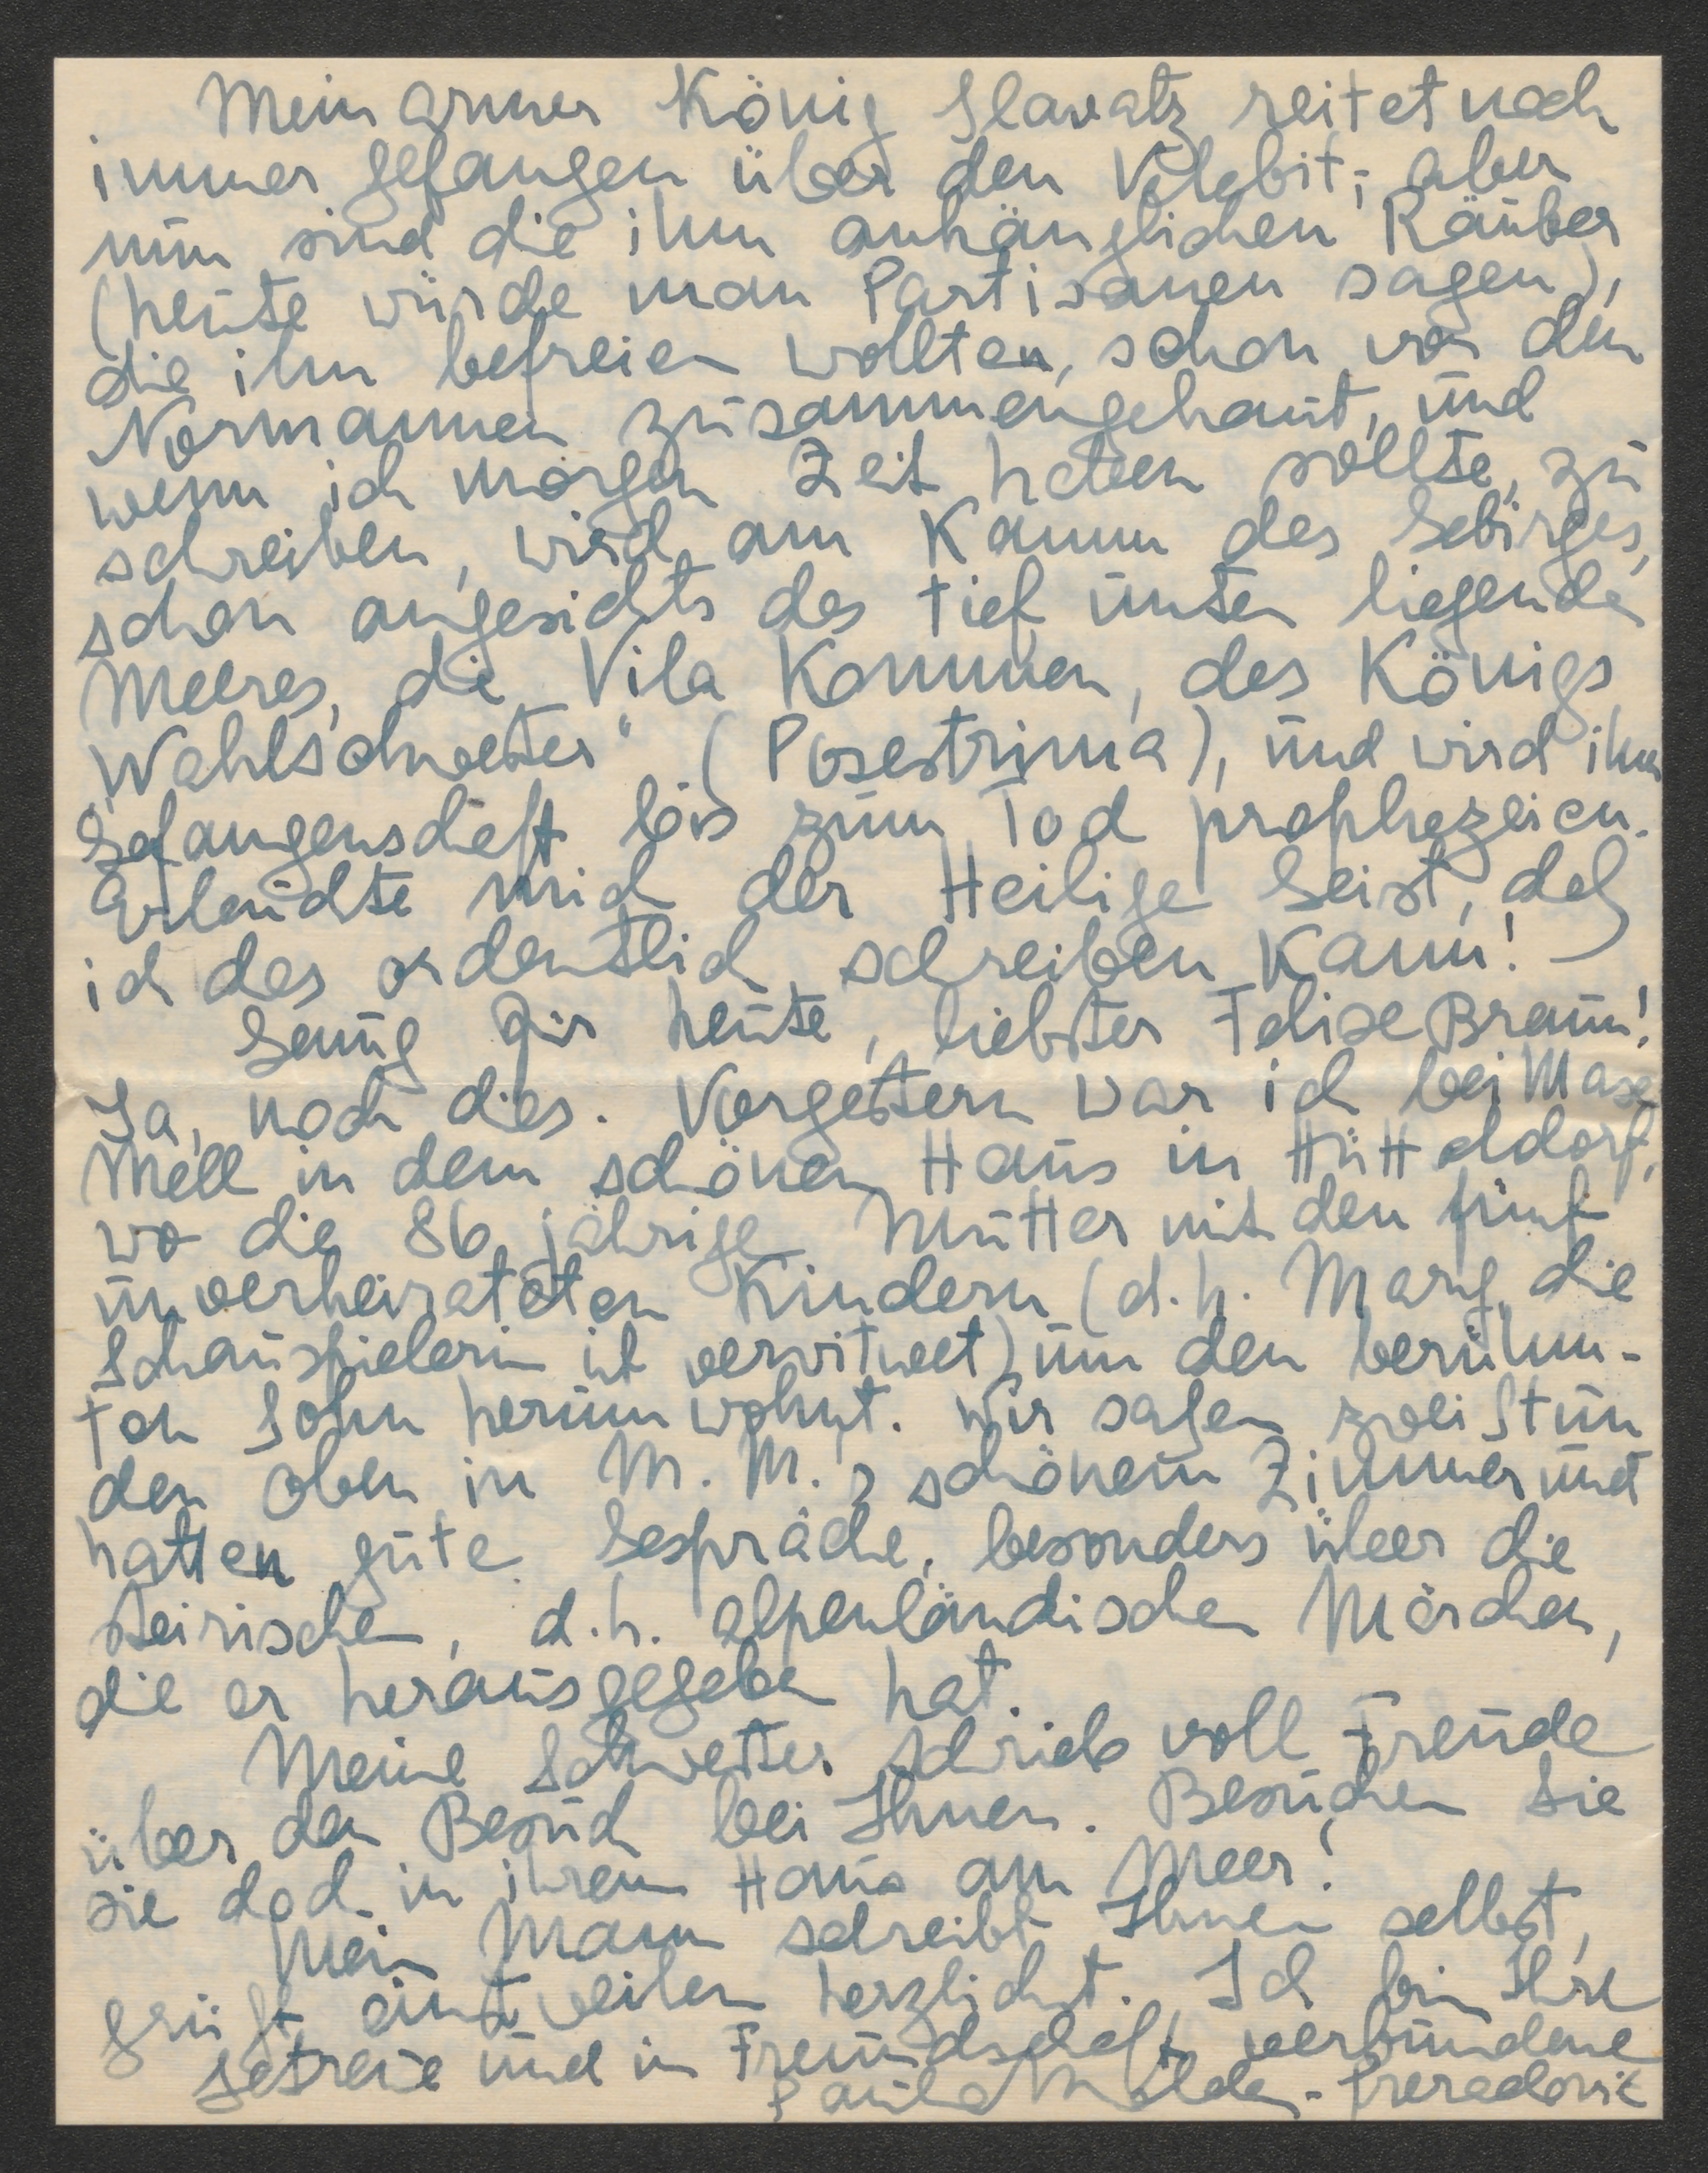 Mein armer König Slavatz reitet noch
immer gefangen über den Velebit; aber
nun sind die ihm anhänglichen Räuber
(heute würde man Partisanen sagen),
die ihn befreien wollten, schon von den
Normannen zusammengehaut, und
wenn ich morgen Zeit haben sollte, zu
schreiben, wird am Kamm des Gebirges,
schon angesichts des tief unten liegenden
Meeres, die Vila kommen, des Königs
„Wahlschwester“ (Posestrima), und wird ihm
Gefangenschaft bis zum Tod prophezeien.
Erleuchte mich der Heilige Geist, daß
ich das ordentlich schreiben kann! –
Genug für heute, liebster Felix Braun!
Ja, noch dies. Vorgestern war ich bei Max
Mell in dem schönen Haus in Hütteldorf,
wo die 86 jährige Mutter mit den fünf
unverheirateten Kindern (d.h. Marg, die
Schauspielerin ist verwitwet) um den berühm-
ten Sohn herum wohnt. Wir saßen zwei Stun
den oben in M. M.'s schönem Zimmer und
hatten gute Gespräche, besonders über die
steirischen, d.h. alpenländischen Märchen,
die er herausgegeben hat.
Meine Schwester schrieb voll Freude
über den Besuch bei Ihnen. Besuchen Sie
sie doch in ihrem Haus am Meer!
Mein Mann schreibt Ihnen selbst,
grüßt einstweilen herzlichst. Ich bin Ihre
getreue und in Freundschaft verbundene
Paula Molden-Preradović